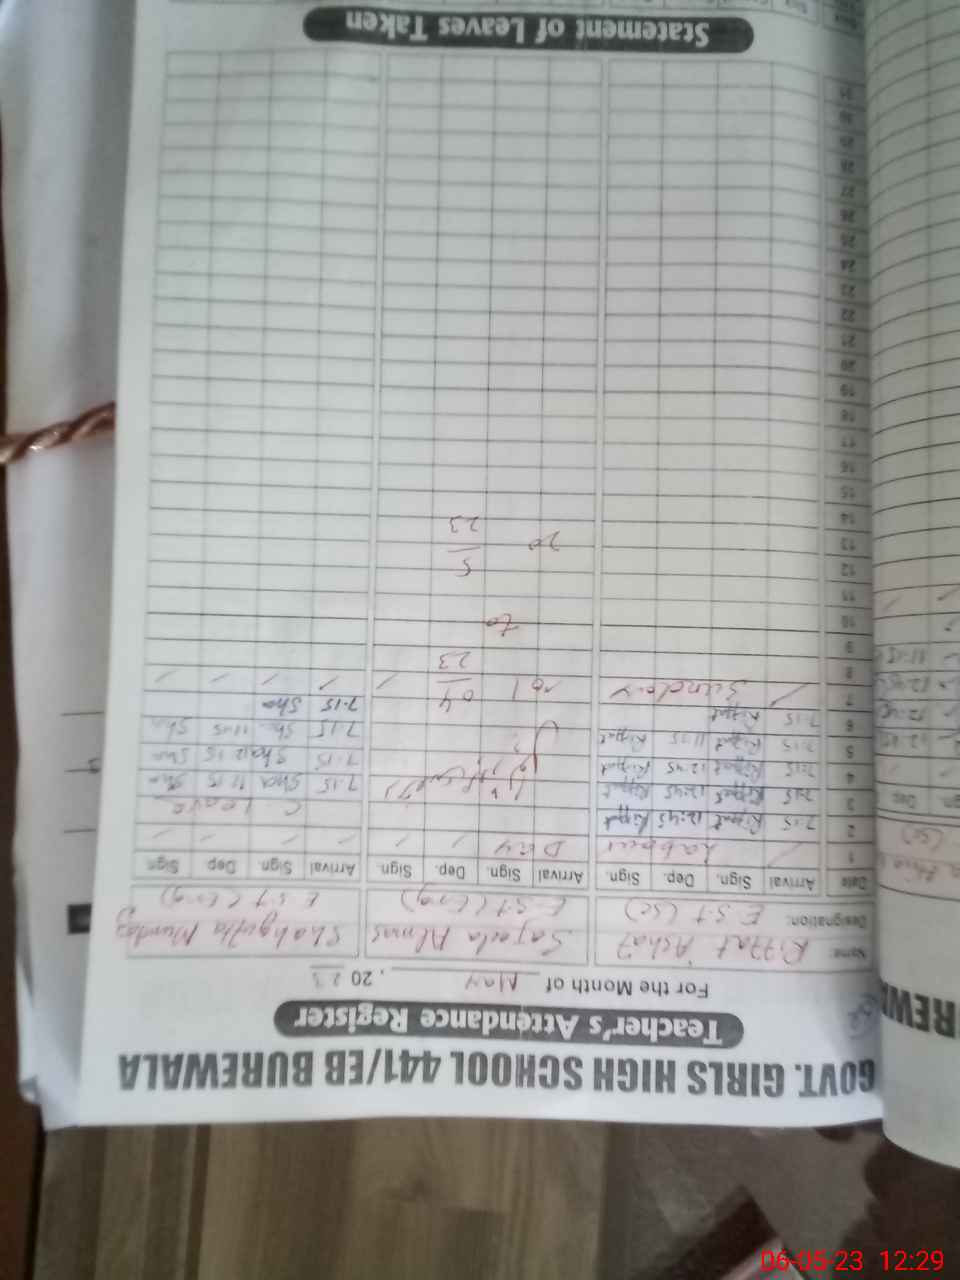 GOVT. GIRLS HIGH SCHOOL 441/EB BUREWALA
Teacher's Attendance Register
For the Month of May, 2023
Name: Riffat Sajeela Almas Shahgufta Mumtaz
Designation: E.S.T (Sc) E.S.T (Eng) E.S.T (Eng)
Date Arrival Sign. Dep. Sign. Arrival Sign. Dep. Sign. Arrival Sign Dep Sign
1 / Labour Day / / / / / /
2 7:15 Riffat 12:45 Riffat C. Leave
3 7:15 Riffat 12:45 Riffat 7.15 Sha 11 15 Sha
4 7:15 Riffat 12 45 Riffat 7.15 Sha 12 15 Sha
5 7:15 Riffat 11 45 Riffat 7.15 Sha 11 45 Sha
6 7:15 Riffat 7.15 Sha
7 / Sunday / / / / /
8
9
10
11
12
13
14
15
16
17
18
19
20
21
22
23
24
25
26
27
28
29
30
31
01 04
23
to
20 5
23
Statement of Leaves Taken
REWA
(SC)
Dep
12 45
12:45
12:45
11:15
06-05-23 12:29